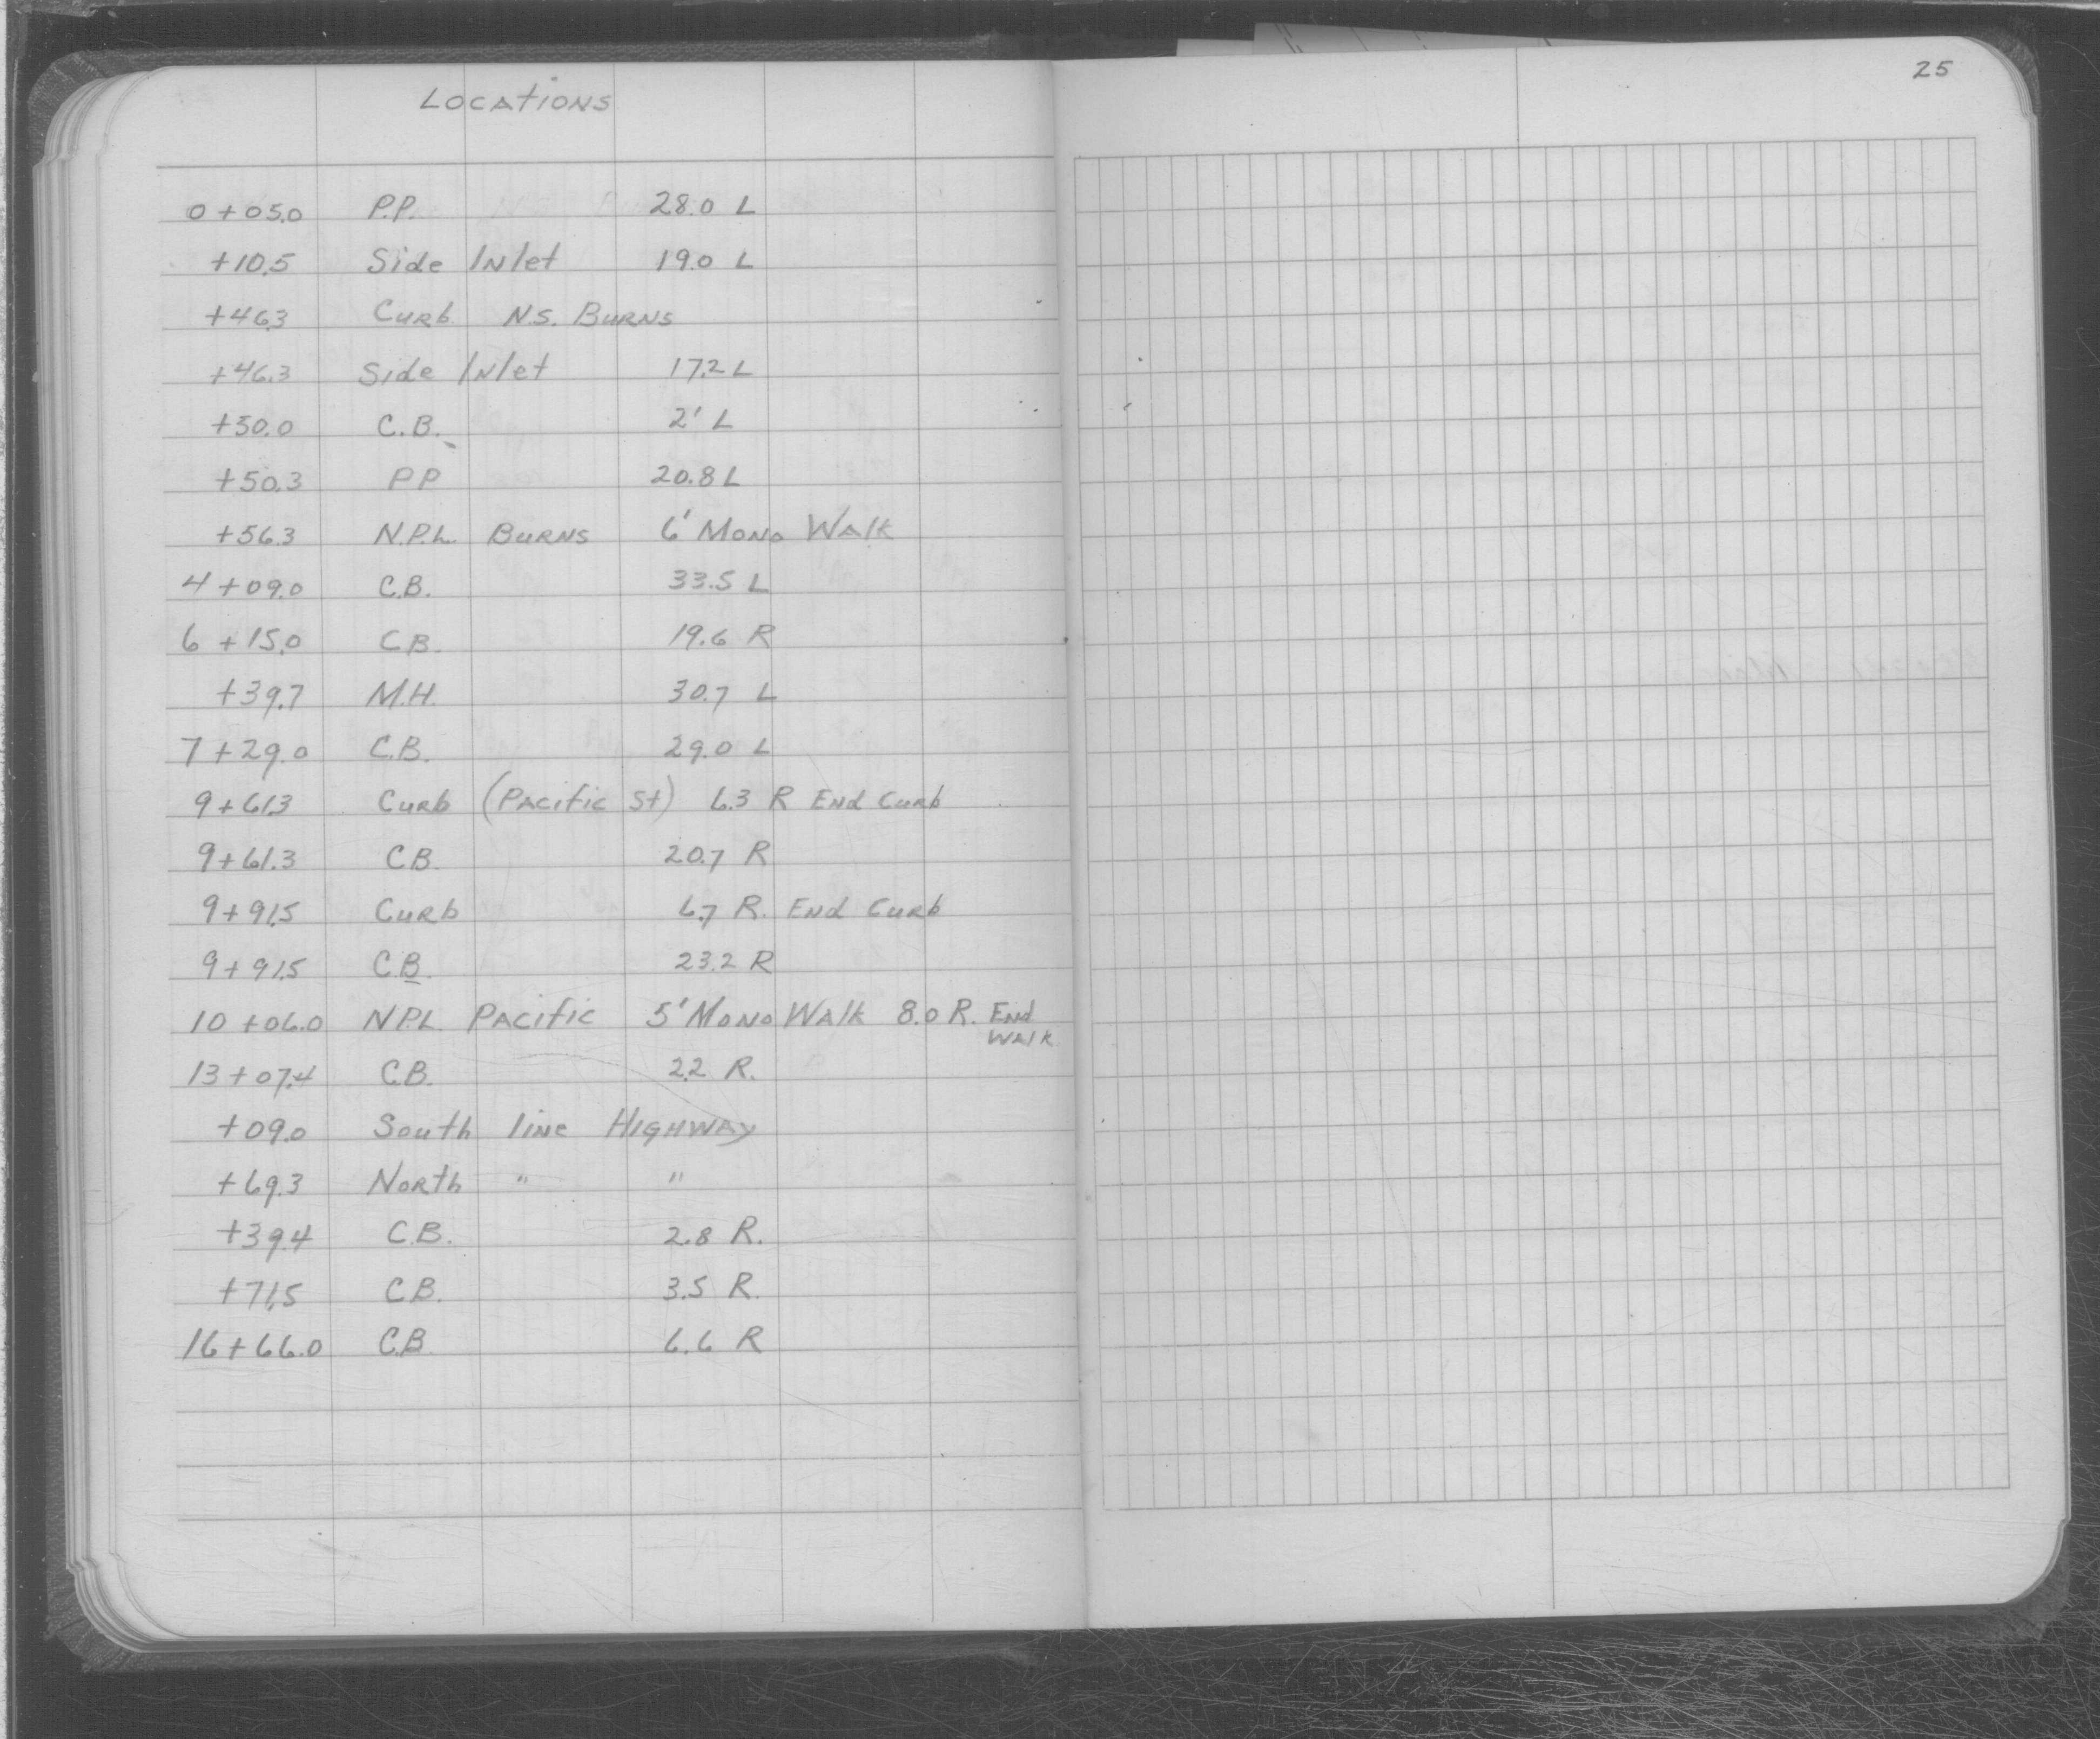 25
LOCATIONS
0+05.0 P.P. 28.0 L
+10.5 Side Inlet 19.0 L
+46.3 Curb N.S. BURNS
+46.3 Side Inlet 17.2 L
+50.0 C.B. 2' L
+50.3 PP 20.8 L
+56.3 N.P.L. BURNS 6' MONO WALK
4+09.0 C.B. 33.5 L
6+15.0 C.B. 19.6 R
+39.7 M.H. 30.7 L
7+29.0 C.B. 29.0 L
9+61.3 Curb (Pacific St) 6.3 R End Curb
9+61.3 C.B. 20.7 R
9+91.5 Curb 6.7 R. End Curb
9+91.5 C.B. 23.2 R
10+06.0 N.P.L. Pacific 5' MONO WALK 8.0 R. End
WALK
13+07.4 C.B. 2.2 R.
+09.0 South line HIGHWAY
+69.3 North " "
+39.4 C.B. 2.8 R.
+71.5 C.B. 3.5 R.
16+66.0 C.B. 6.6 R